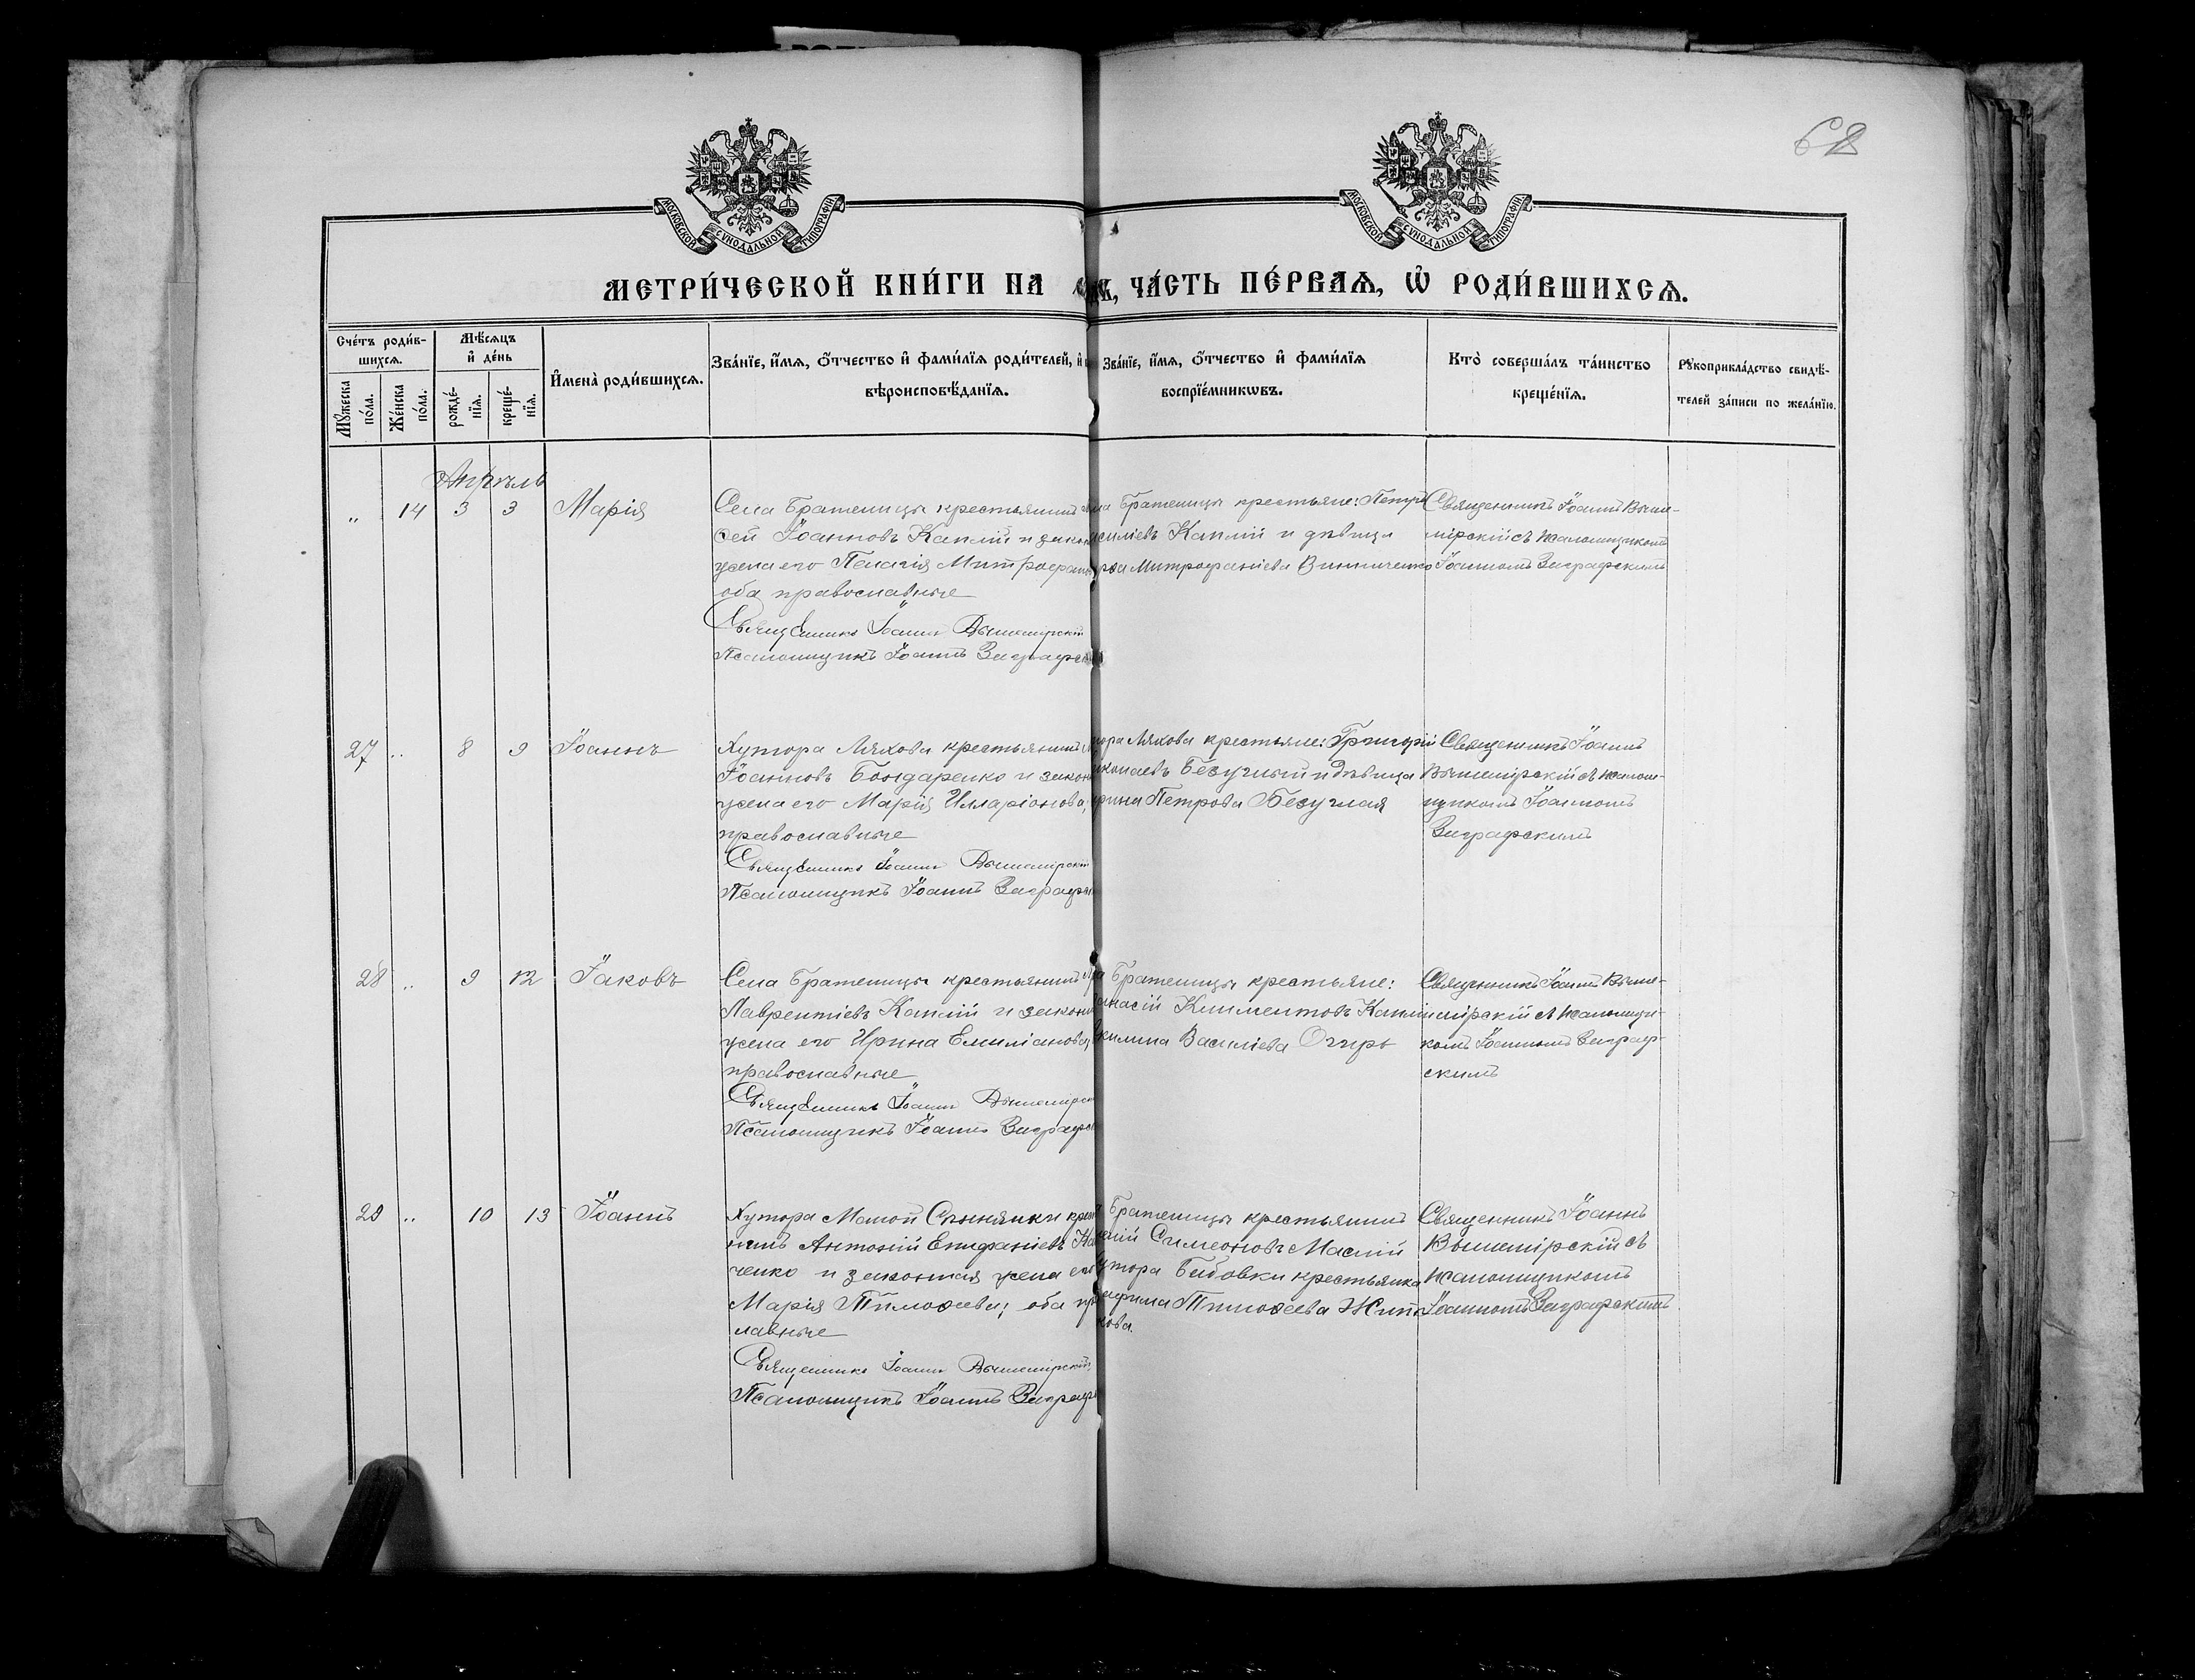 62
МОСКОВСКОЙ СУНОДАЛЬНОЙ ТИПОГРАФІИ
МОСКОВСКОЙ СУНОДАЛЬНОЙ ТИПОГРАФІИ
МЕТРИ́ЧЕСКОЙ КНИ́ГИ НА
ЧА́СТЬ ПЕ́РВАѦ, Ѽ РОДИ́ВШИХСѦ.
Сче́тъ роди́в-
шихсѧ.
Мꙋ́жеска
по́ла.
Же́нска
по́ла.
Мѣ́сѧцъ
и҆ де́нь
рожде́-
нїѧ.
креще́-
нїѧ.
И҆мена̀ роди́вшихсѧ.
Зва́нїе, и҆́мѧ, ѻ҆́тчество и҆ фами́лїѧ роди́телей, и҆
вѣроисповѣ́данїѧ.
Зва́нїе, и҆́мѧ, ѻ҆́тчество и҆ фами́лїѧ
воспрїе́мникѡвъ.
Кто̀ соверша́лъ та́инство
креще́нїѧ.
Рꙋкоприкла́дство свидѣ́-
телей за́писи по жела́нїю.
Апрѣль
„ 14 3 3 Марія
Села Братеницы крестьянинъ
сей Іоанновъ Каплій и закон
жена его Пелагія Митрофан
оба православные
Священникъ Іоаннъ Вышемірскій
Псаломщикъ Іоаннъ Заграфск
Братеницы крестьяне: Петръ
силіевъ Каплій и дѣвица
Митрофаніева Винниченко
Священникъ Іоаннъ Выше-
мірскій съ псаломщикомъ
Іоанномъ Заграфскимъ
27 „ 8 9 Іоаннъ
Хутора Ляхова крестьянинъ
Іоанновъ Бондаренко и закон
жена его Марія Илларіонова;
православные
Священникъ Іоаннъ Вышемірскій
Псаломщикъ Іоаннъ Заграфск
тора Ляхова крестьяне: Григорій
иколаевъ Безуглый и дѣвица
рина Петрова Безуглая
Священникъ Іоаннъ
Вышемірскій съ псалом-
щикомъ Іоанномъ
Заграфскимъ
28 „ 9 12 Іаковъ
Села Братеницы крестьянинъ
Лаврентіевъ Каплій и закон
жена его Ирина Емиліанова,
православные
Священникъ Іоаннъ Вышемірск
Псаломщикъ Іоаннъ Заграфск
Братеницы крестьяне:
насій Климентовъ Каплій
килина Василіева Огирь
Священникъ Іоаннъ Выше-
мірскій съ псаломщи-
комъ Іоанномъ Заграф-
скимъ
29 „ 10 13 Іоаннъ
Хутора Малой Спынянки крест
нинъ Антоній Епифаніевъ
ченко и законная жена его
Марія Тимоѳеева; оба пр
лавные
Священникъ Іоаннъ Вышемірскій
Псаломщикъ Іоаннъ Заграф
Братеницы крестьянинъ
Симеоновъ Маслій
утора Бидовки крестьянка
Тимоѳеева Жит
кова.
Священникъ Іоаннъ
Вышемірскій съ
псаломщикомъ
Іоанномъ Заграфскимъ